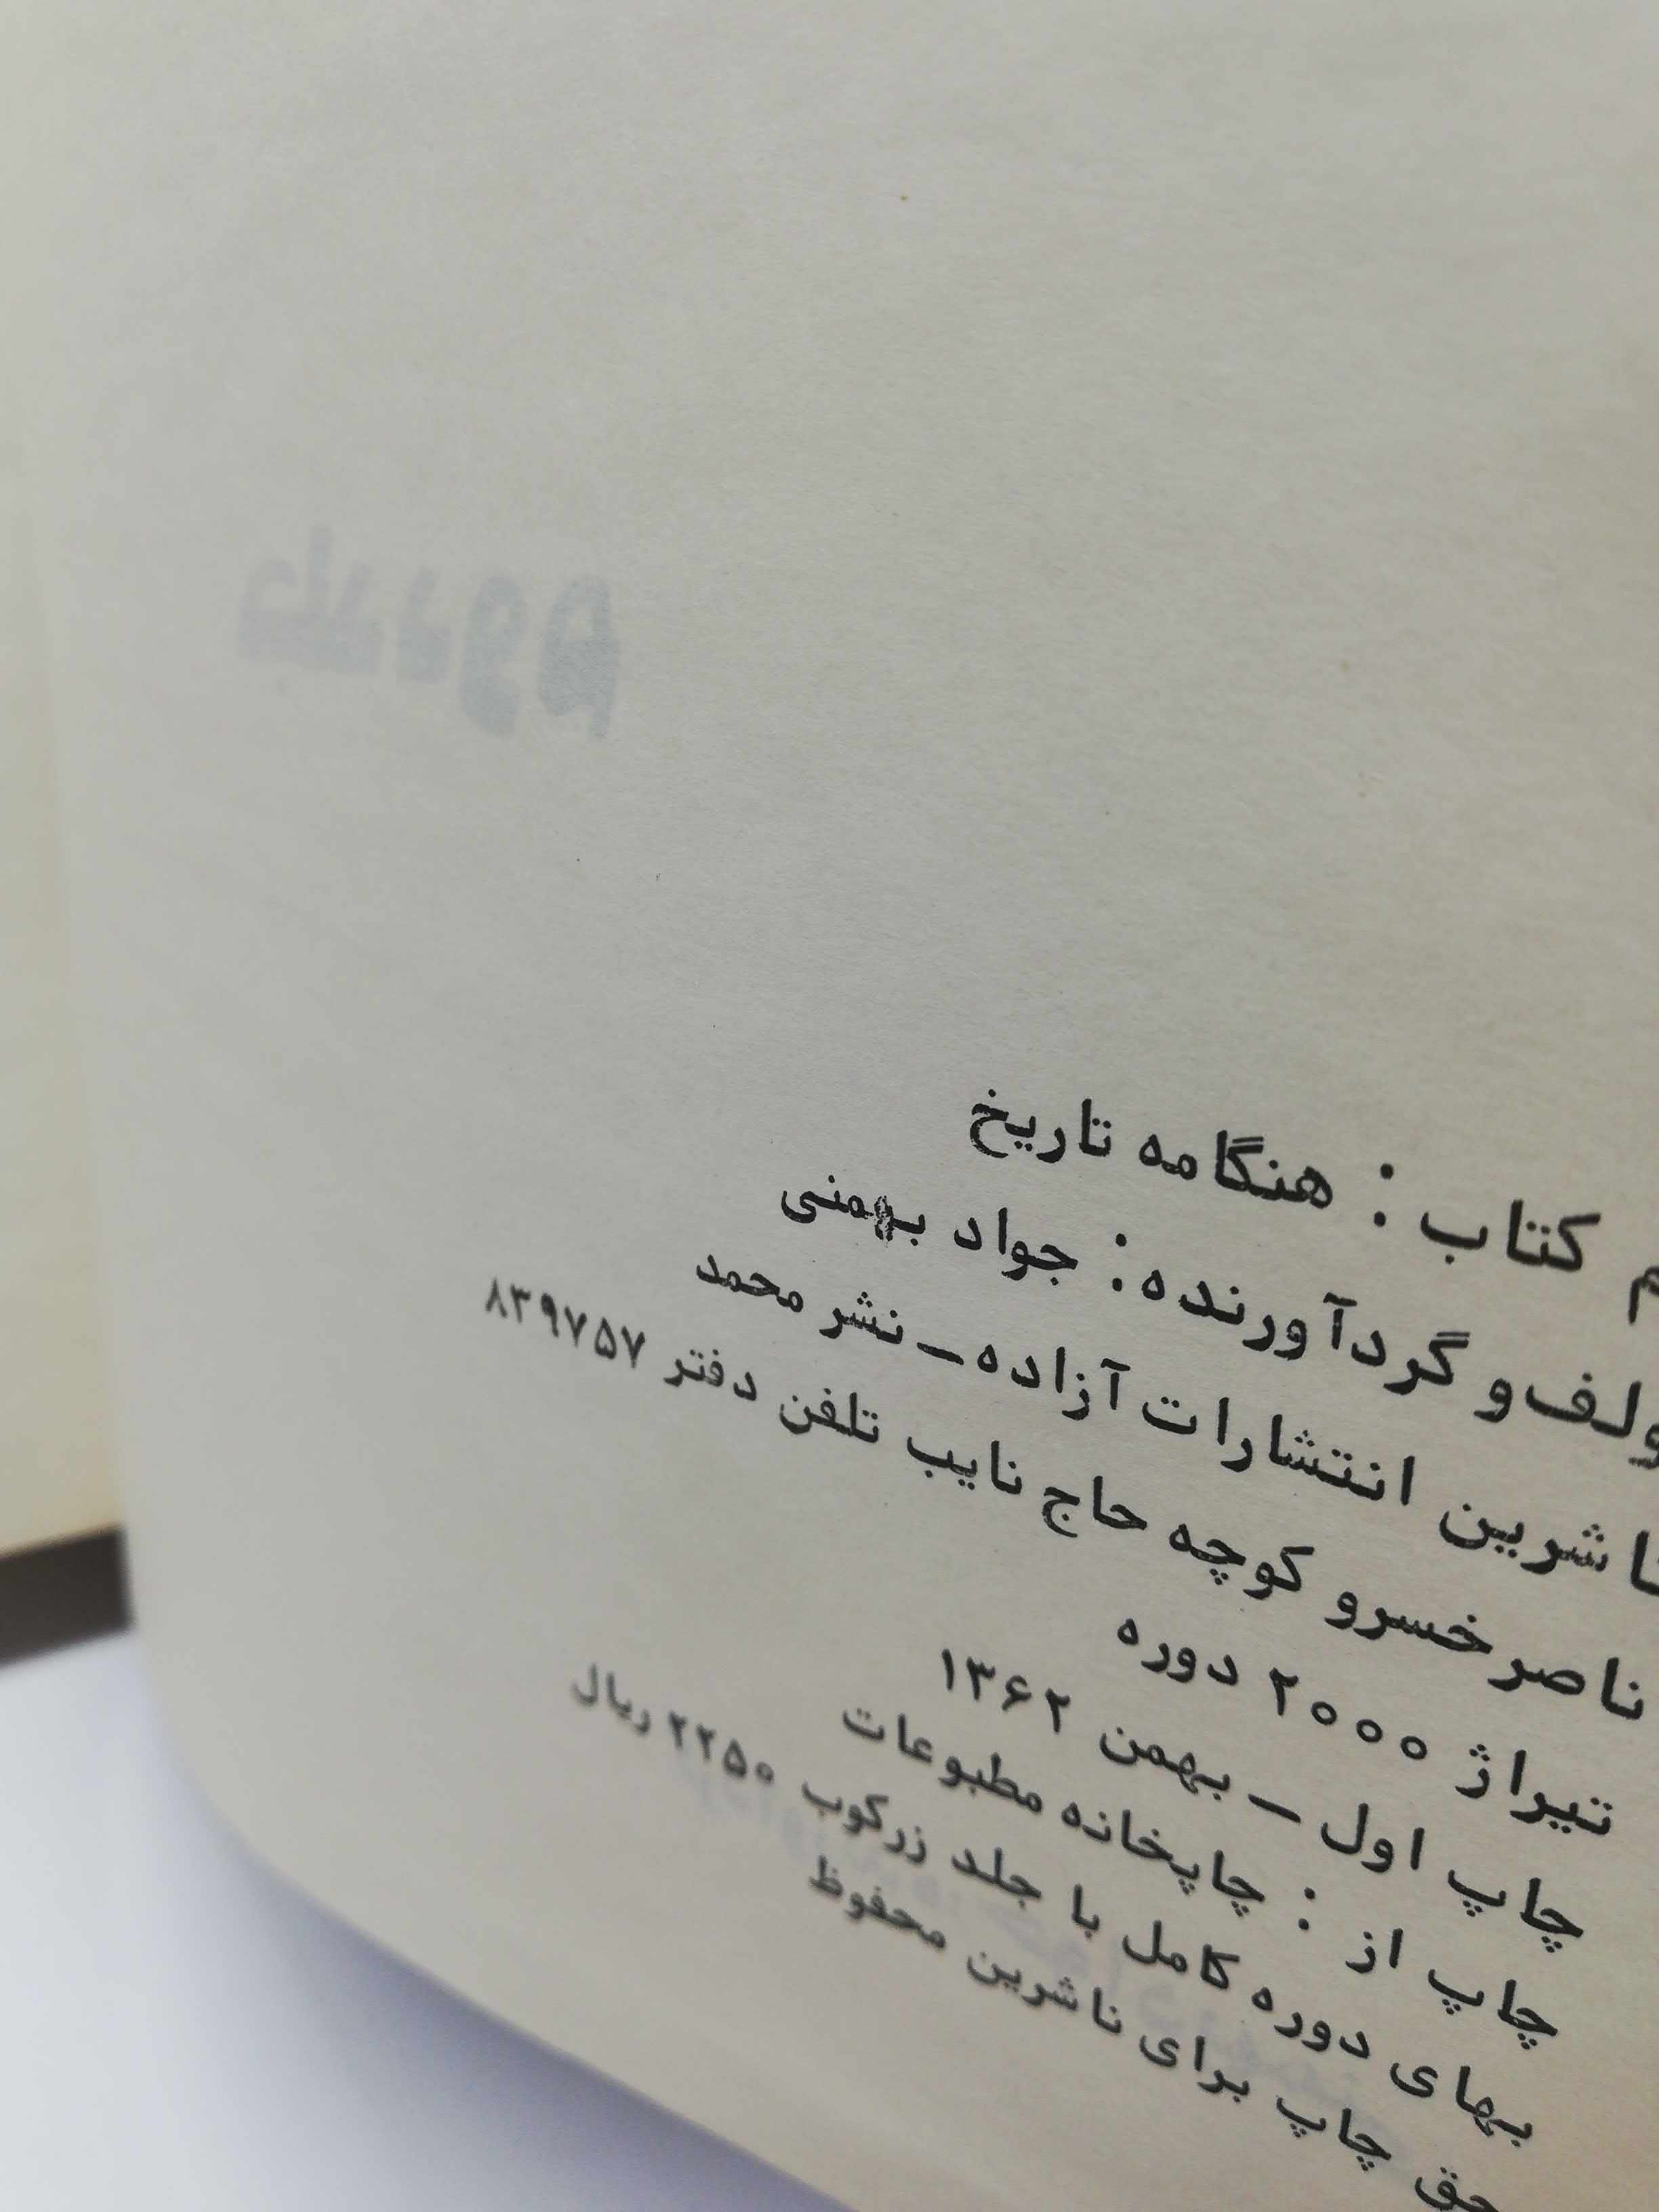 جلد دوم
م کتاب : هنگامه تاریخ
ولف و گردآورنده : جواد بهمنی
ناشرین انتشارات آزاده ــ نشر محمد
ناصر خسرو کوچه حاج نایب تلفن دفتر ۸۳۹۷۵۷
تیراژ ۲۰۰۰ دوره
چاپ اول ــ بهمن ۱۳۶۲
چاپ از : چاپخانه مطبوعات
بهای دوره کامل با جلد زرکوب ۲۲۵۰ ریال
حق چاپ برای ناشرین محفوظ